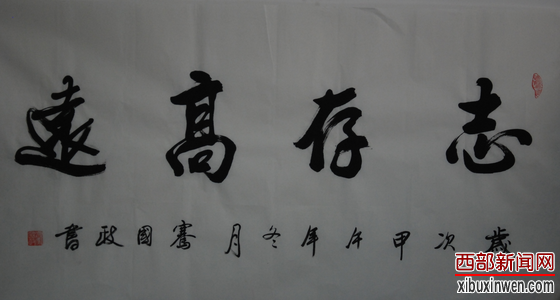 志存高遠
歲次甲午年冬月騫國政書
西部新闻网
xibuxinwen.com